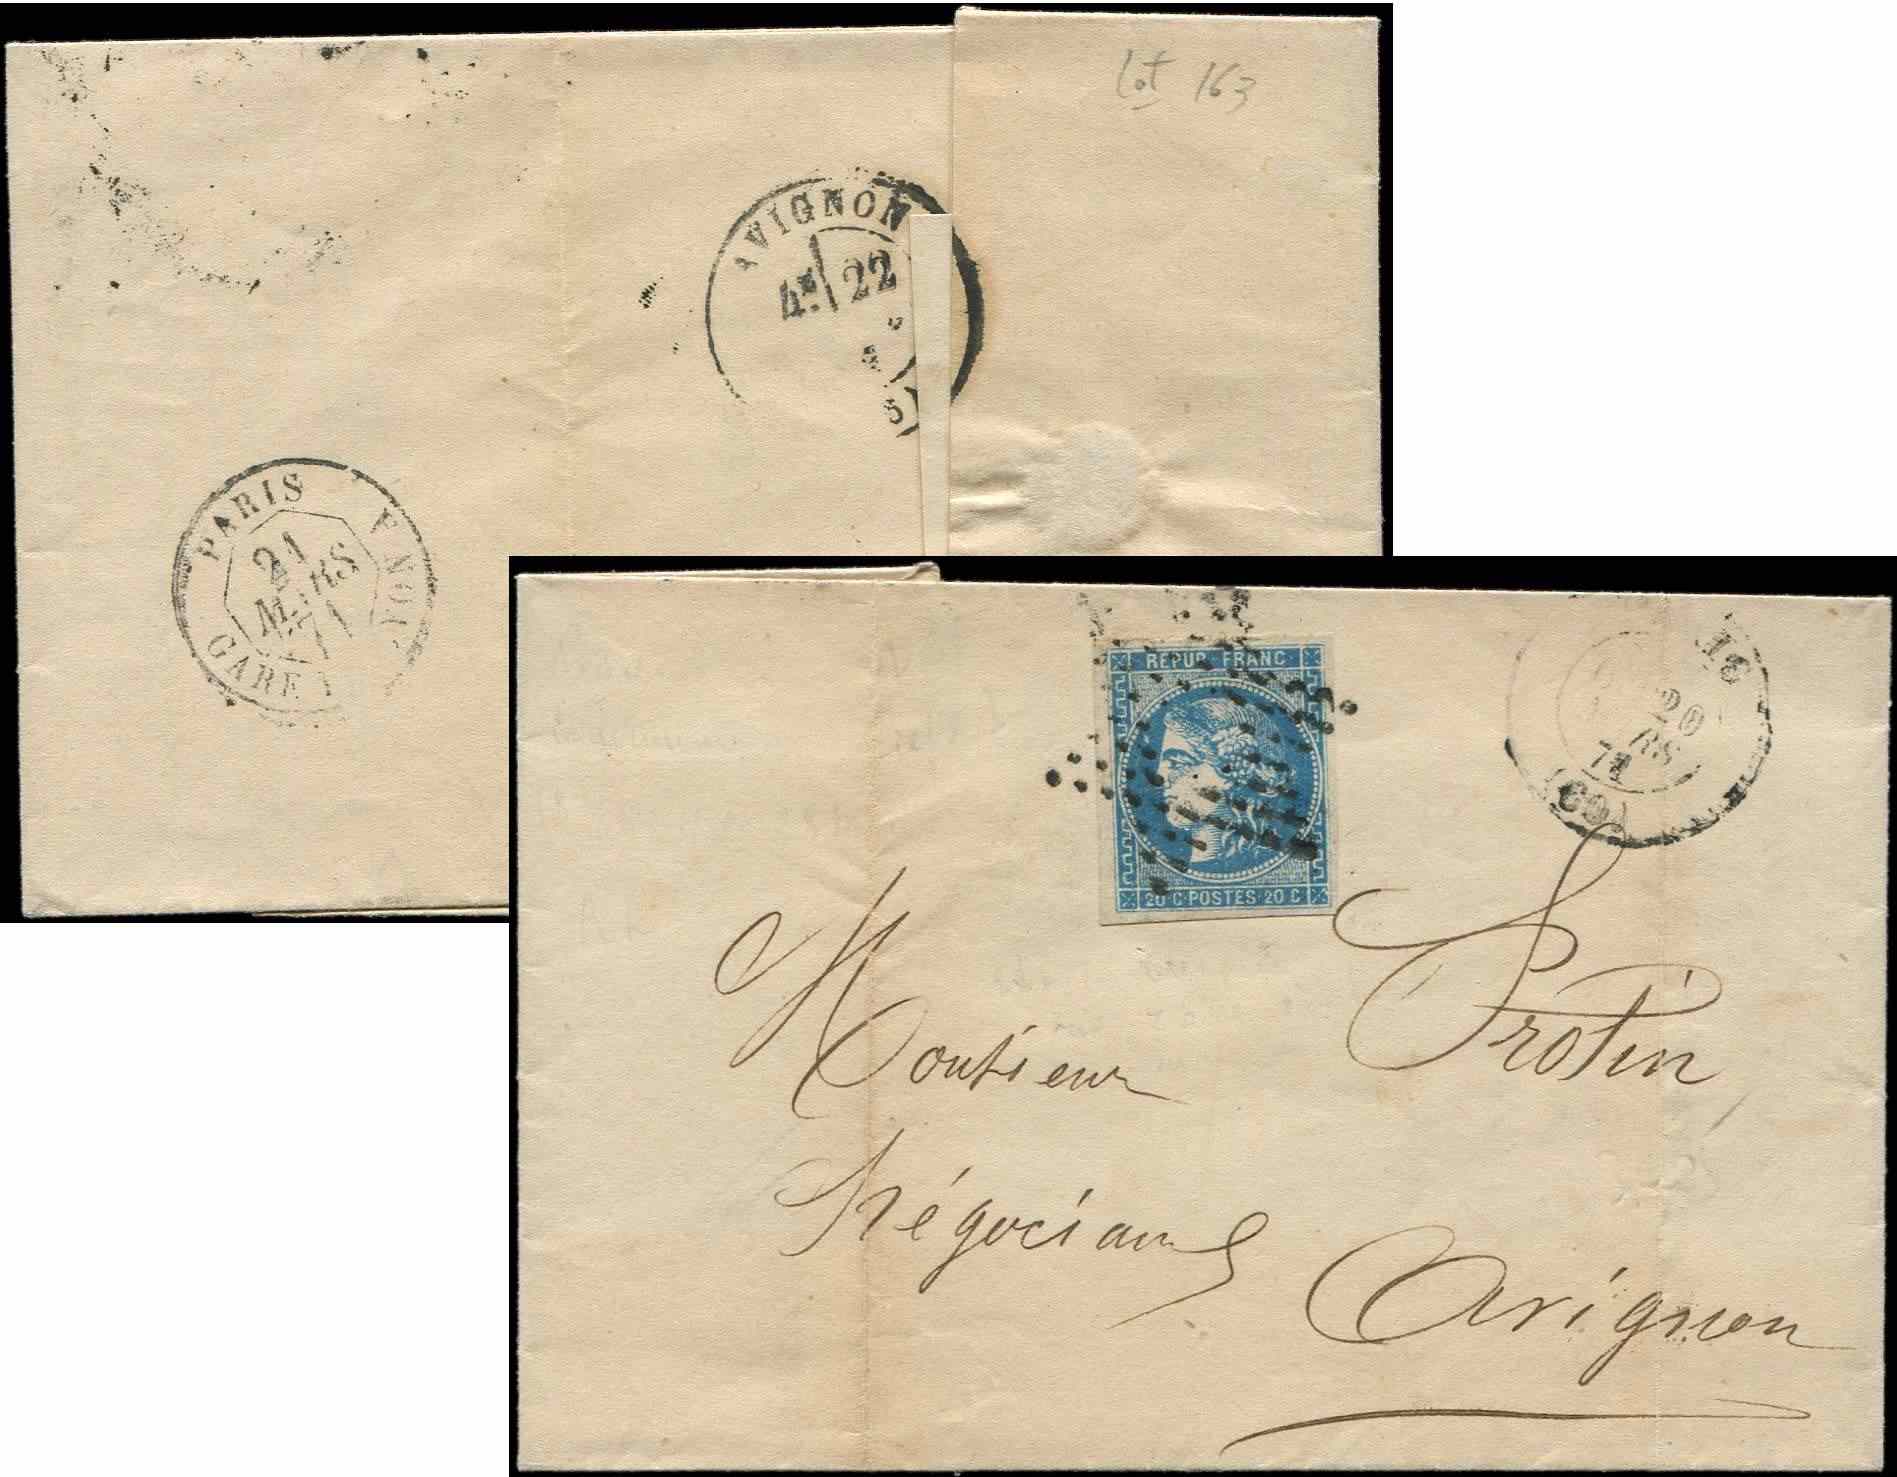 Lot 163
AVIGNON
4E 22
PARIS
21
MARS
71
GARE
REPUB FRANC
20 C POSTES 20 C
20
RS
71
(60)
Monsieur Protin
Négociant
Avignon